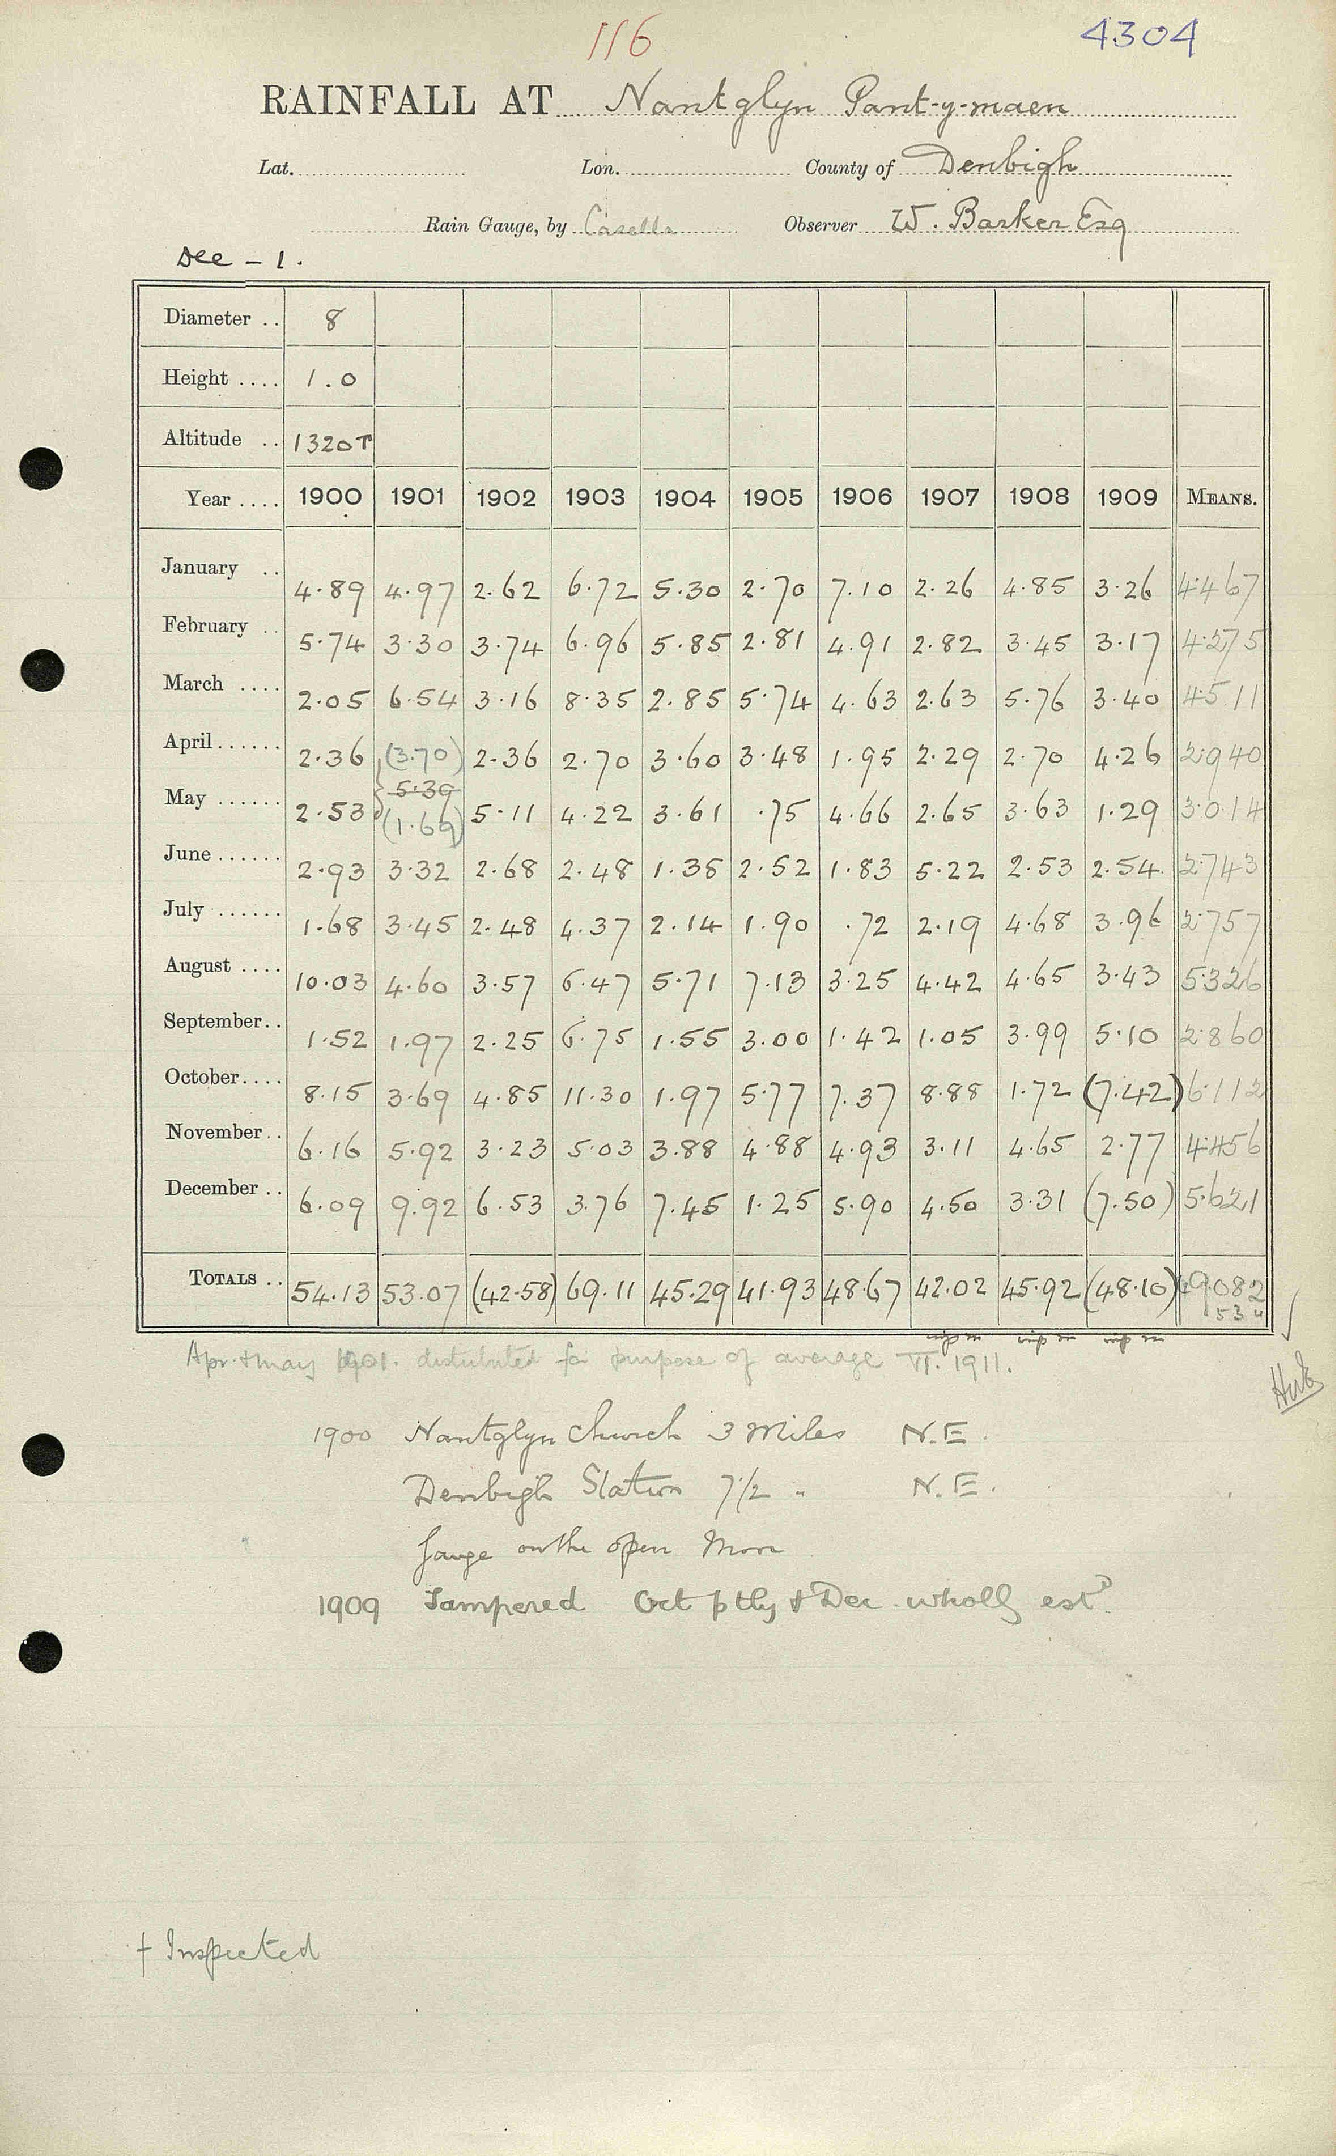 116
4304
RAINFALL AT Nantglyn Pant-y-maen
Lat. Lon. County of Denbigh
Rain Gauge, by Casella Observer W. Barker Esq
Dee - 1.
Diameter .. 8
Height .... 1.0
Altitude .. 1320T
Year .... 1900 1901 1902 1903 1904 1905 1906 1907 1908 1909 MEANS.
January .. 4.89 4.97 2.62 6.72 5.30 2.70 7.10 2.26 4.85 3.26 4.467
February .. 5.74 3.30 3.74 6.96 5.85 2.81 4.91 2.82 3.45 3.17 4.275
March .... 2.05 6.54 3.16 8.35 2.85 5.74 4.63 2.63 5.76 3.40 4.511
April...... 2.36 (3.70) 2.36 2.70 3.60 3.48 1.95 2.29 2.70 4.26 2.940
5.39
May ...... 2.53 (1.69) 5.11 4.22 3.61 .75 4.66 2.65 3.63 1.29 3.014
June...... 2.93 3.32 2.68 2.48 1.38 2.52 1.83 5.22 2.53 2.54 2.743
July ...... 1.68 3.45 2.48 4.37 2.14 1.90 .72 2.19 4.68 3.96 2.757
August .... 10.03 4.60 3.57 6.47 5.71 7.13 3.25 4.42 4.65 3.43 5.326
September.. 1.52 1.97 2.25 6.75 1.55 3.00 1.42 1.05 3.99 5.10 2.860
October.... 8.15 3.69 4.85 11.30 1.97 5.77 7.37 8.88 1.72 (7.42) 6.112
November.. 6.16 5.92 3.23 5.03 3.88 4.88 4.93 3.11 4.65 2.77 4.456
December .. 6.09 9.92 6.53 3.76 7.45 1.25 5.90 4.50 3.31 (7.50) 5.621
TOTALS .. 54.13 53.07 (42.58) 69.11 45.29 41.93 48.67 42.02 45.92 (48.10) 49.082
Apr. & May 1901. distributed for purpose of average VI. 1911.
1900 Nantglyn Church 3 Miles N.E.
Denbigh Station 7 1/2 " N.E.
Gauge on the open Moor
1909 Tampered Oct ptly & Dec. wholly estd.
† Inspected